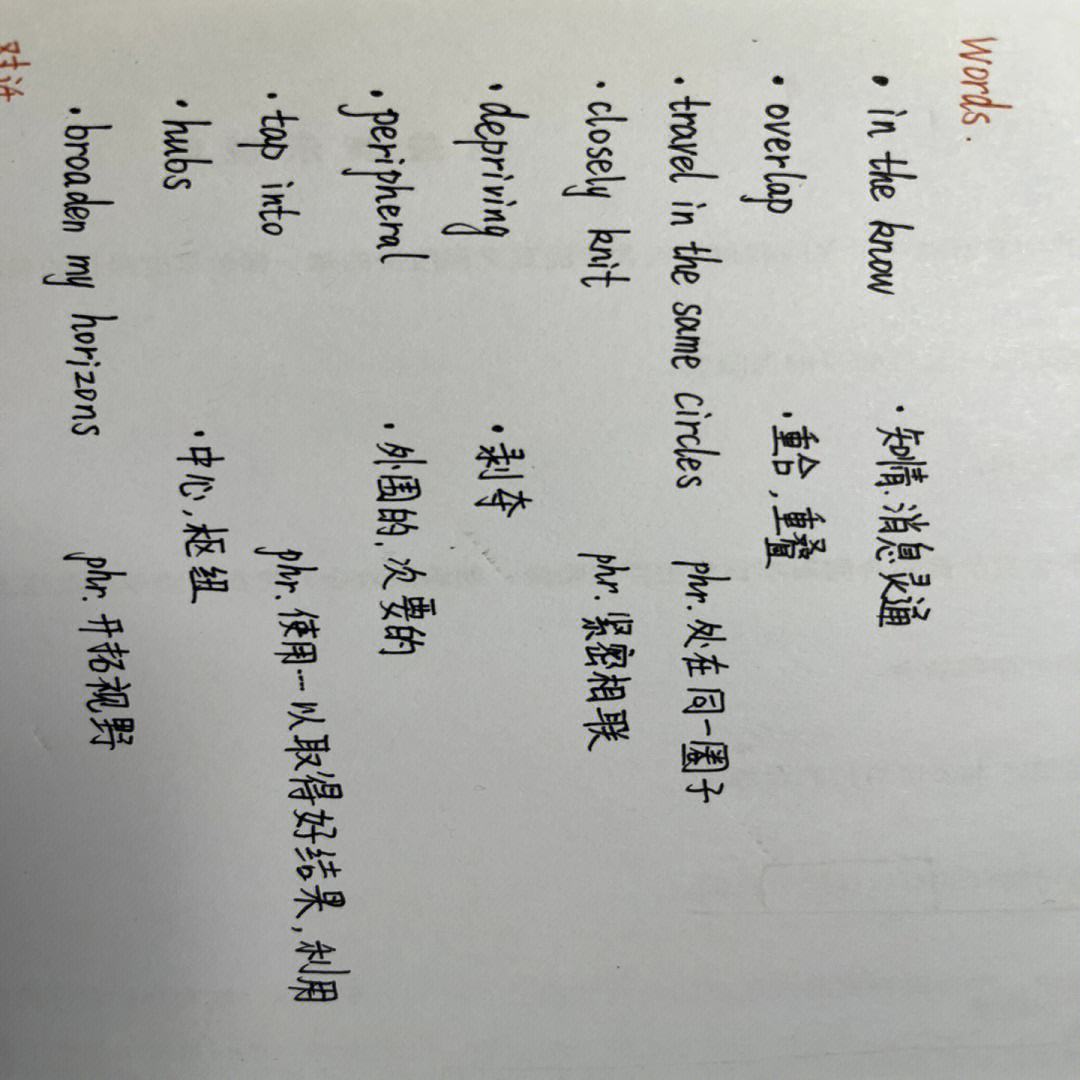 Words.
· in the know · 知情.消息灵通
· overlap · 重合,重叠
· travel in the same circles phr. 处在同一圈子
· closely knit phr. 紧密相联
· depriving · 剥夺
· peripheral · 外围的,次要的
· tap into phr. 使用…以取得好结果,利用
· hubs · 中心,枢纽
· broaden my horizons phr. 开拓视野
对话